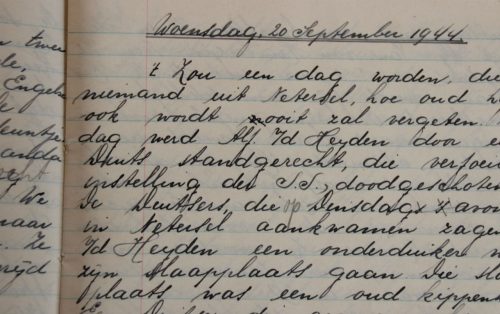 twee
de,
Engels
de
leuntje
anda
We
maar
. Ze
rijd
Woensdag, 20 September 1944.
't Zou een dag worden, die
niemand uit Netersel, hoe oud h
ook wordt nooit zal vergeten.
dag werd Alf. v/d Heyden door e
Duits standgerecht, die verfoei
instelling der S.S. doodgeschoten
De Duitsers, die op Dinsdags avon
in Netersel aankwamen zagen
v/d Heyden een onderduiker n
zijn slaapplaats gaan. Die sla
plaats was een oud kippenh